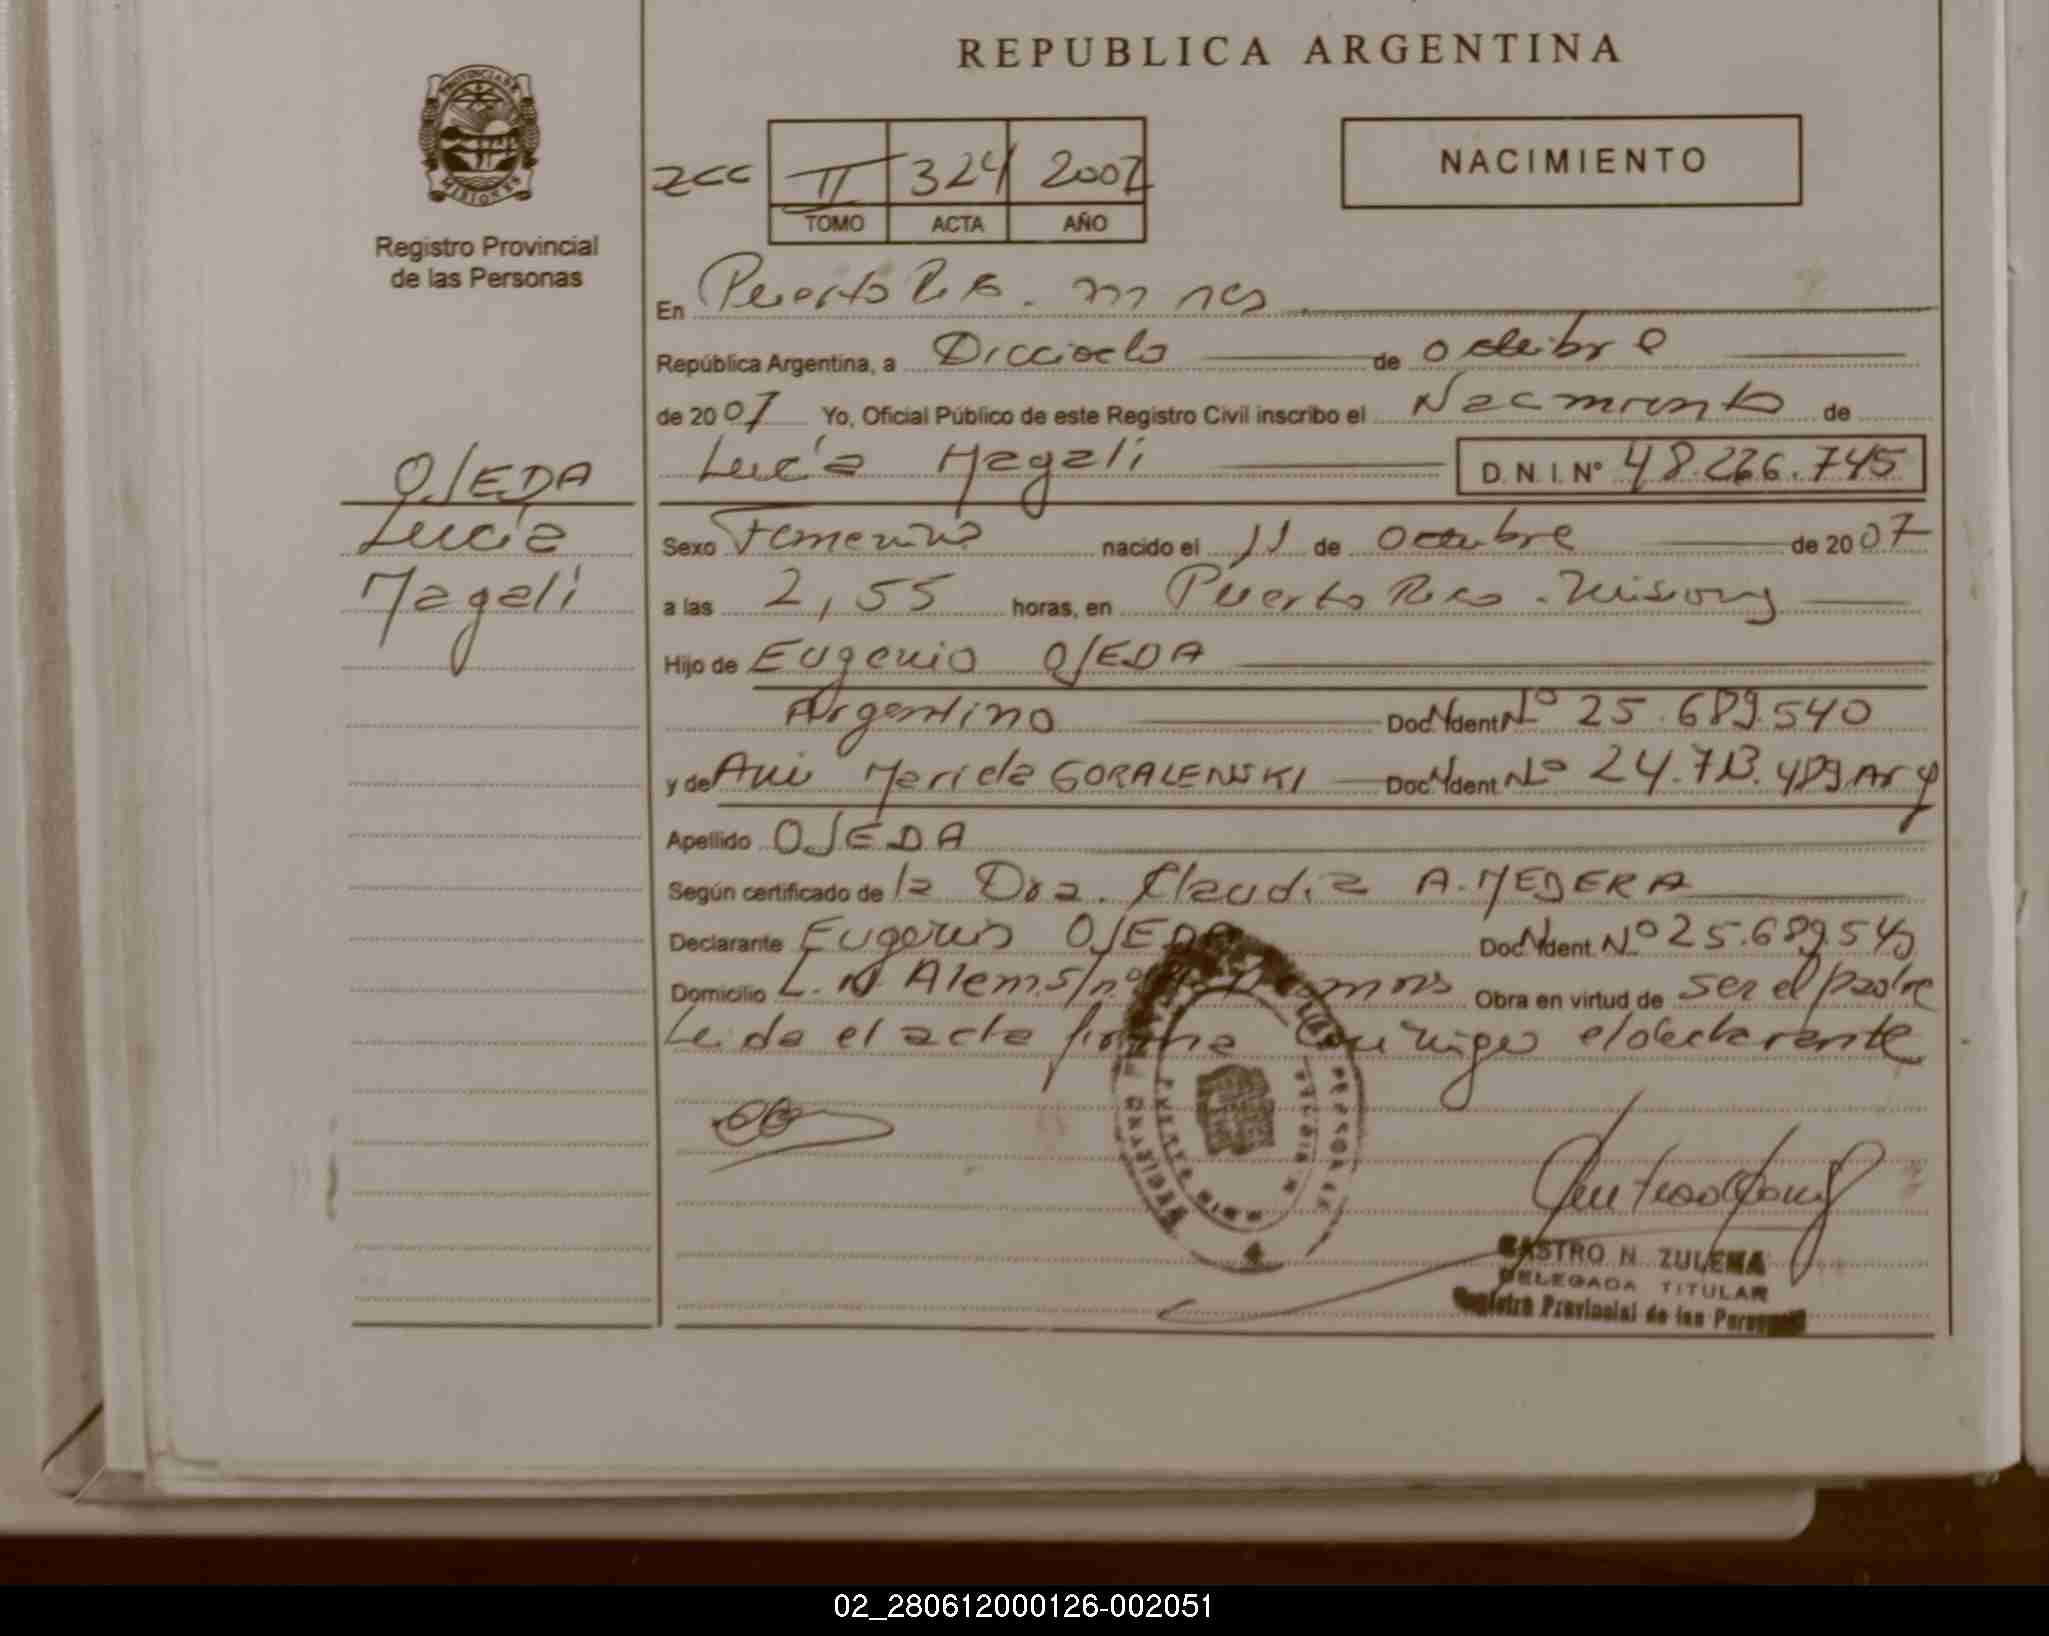 REPUBLICA ARGENTINA
PROVINCIA DE
MISIONES
Registro Provincial
de las Personas
NACIMIENTO
zcc II 324 2007
TOMO ACTA AÑO
En Puerto Rico. mnes
República Argentina, a Dieciocho de octubre
de 2007 Yo, Oficial Público de este Registro Civil inscribo el Nacimiento de
Lucía Magali D.N.I. Nº 48.226.745
OJEDA
Lucía
Magali
Sexo Femenino nacido el 11 de octubre de 2007
a las 2,55 horas, en Puerto Rico - Misiones
Hijo de Eugenio OJEDA
Argentino Doc. Ident Nº 25.689.540
y de Ani Mariela GORALENSKI Doc. Ident Nº 24.713.489 Arg
Apellido OJEDA
Según certificado de la Dra. Claudia A. MEDERA
Declarante Eugenio OJEDA Doc. Ident. Nº 25.689.540
Domicilio L. N. Alem s/nº Obra en virtud de ser el padre
Leida el acta firma conmigo el declarante
CASTRO N. ZULEMA
DELEGADA TITULAR
Registro Provincial de las Personas
02_280612000126-002051